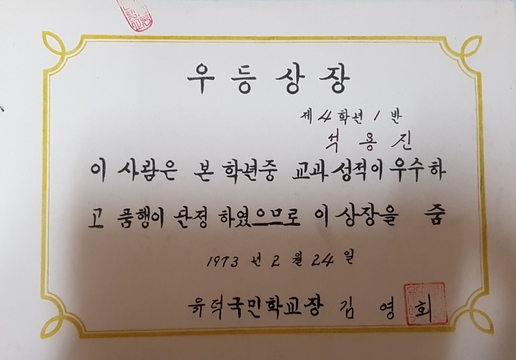 우등상장
제4학년1반
석용진
이 사람은 본 학년중 교과성적이 우수하
고 품행이 단정 하였으므로 이 상장을 줌
1973 년 2 월 24 일
유덕국민학교장 김영회